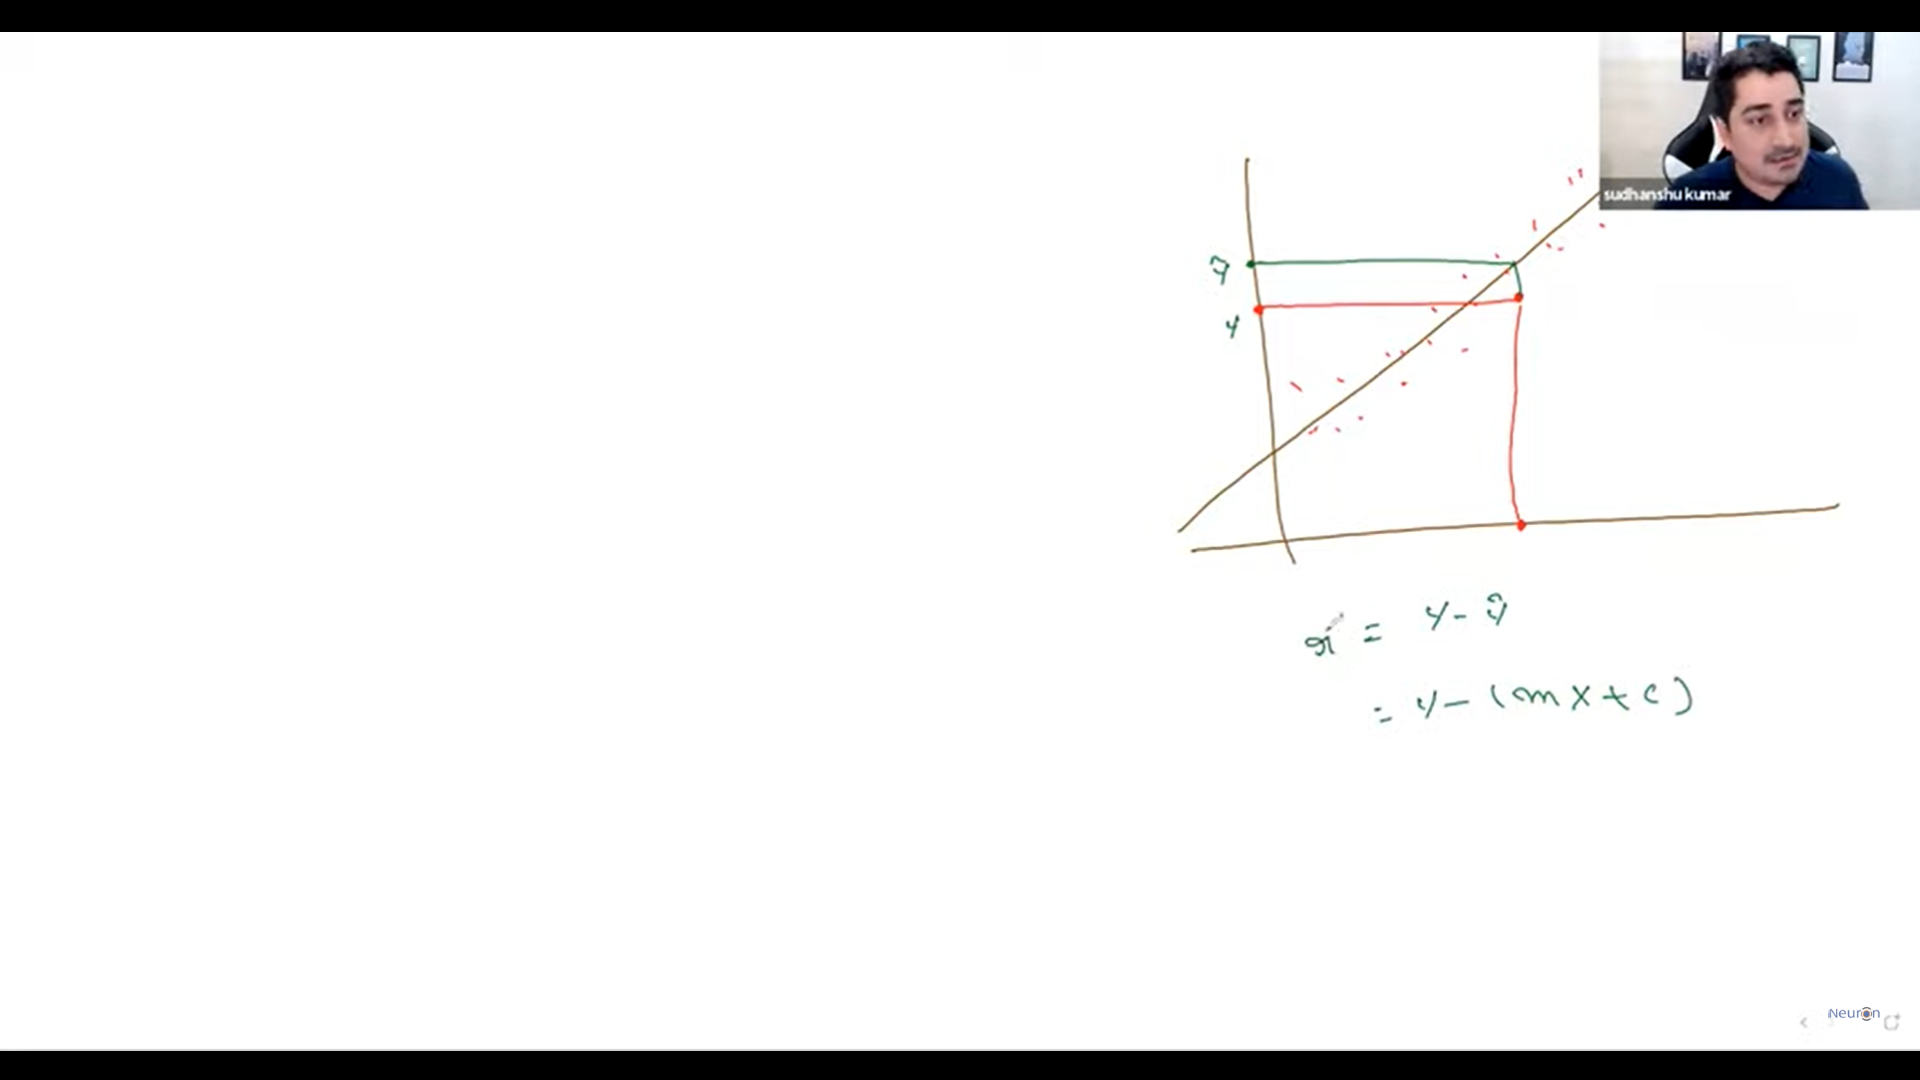 sudhanshu kumar
ŷ
y
r = y - ŷ
= y - (mx + c)
iNeuron